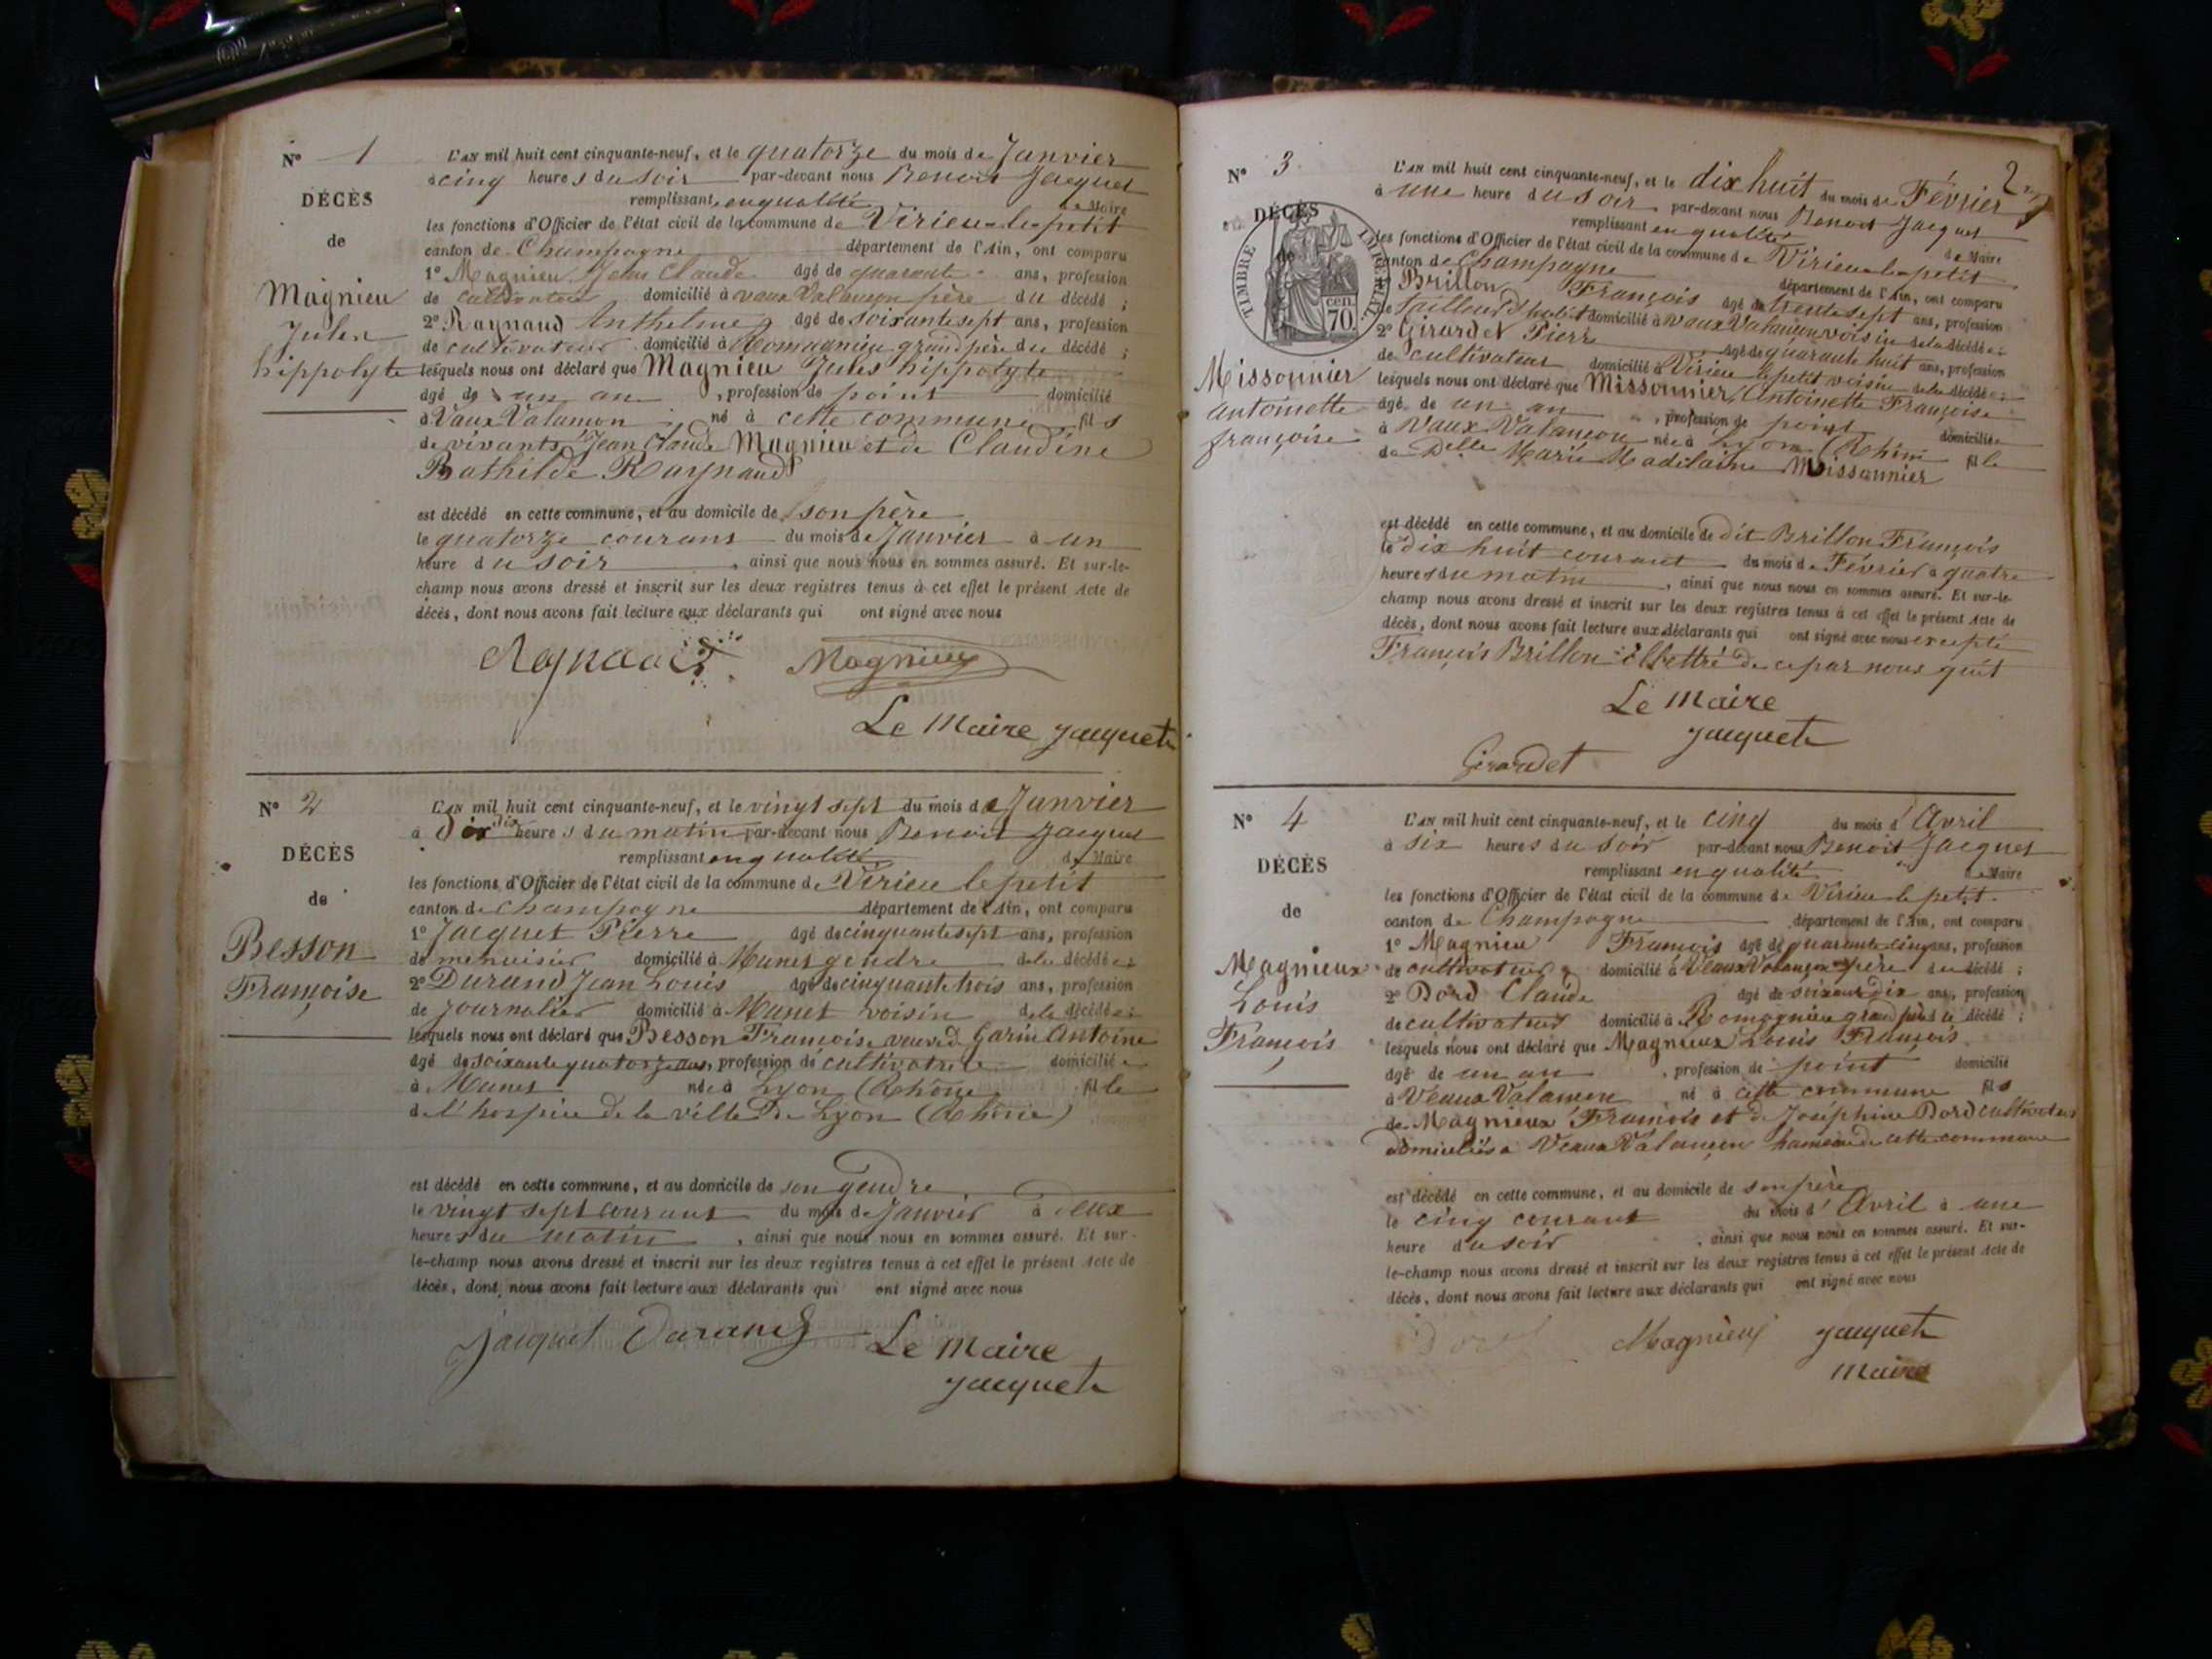 N° 1
DÉCÈS
de
Magnieu
Jules
hippolyte
L'AN mil huit cent cinquante-neuf, et le quatorze du mois de Janvier
à cinq heures du soir par-devant nous Benoit Jacquet
remplissant en qualité de Maire
les fonctions d'Officier de l'état civil de la commune de Virieu-le-petit
canton de Champagne département de l'Ain, ont comparu
1° Magnieu Jean Claude âgé de quarante ans, profession
de cultivateur domicilié à vaux Valançon père du décédé ;
2° Raynaud Anthelme âgé de soixante sept ans, profession
de cultivateur domicilié à Romagnieu grand père du décédé ;
lesquels nous ont déclaré que Magnieu Jules hippolyte
âgé de un an , profession de point domicilié
à Vaux Valançon né à cette commune fils
de vivants Jean Claude Magnieu et de Claudine
Bathilde Raynaud
est décédé en cette commune, et au domicile de son père
le quatorze courant du mois de Janvier à un
heure du soir , ainsi que nous nous en sommes assuré. Et sur-le-
champ nous avons dressé et inscrit sur les deux registres tenus à cet effet le présent Acte de
décès, dont nous avons fait lecture aux déclarants qui ont signé avec nous
Magnieux
Le Maire Jacquet
N° 2
DÉCÈS
de
Besson
Françoise
L'AN mil huit cent cinquante-neuf, et le vingt sept du mois de Janvier
à dix heures du matin par-devant nous Benoit Jacquet
remplissant en qualité de Maire
les fonctions d'Officier de l'état civil de la commune de Virieu le petit
canton de Champagne département de l'Ain, ont comparu
1° Jacquet Pierre âgé de cinquante sept ans, profession
de menuisier domicilié à Munet gendre de la décédée ;
2° Durand Jean Louis âgé de cinquante trois ans, profession
de journalier domicilié à Munet voisin de la décédée ;
lesquels nous ont déclaré que Besson Françoise veuve d. Garin Antoine
âgé de soixante quatorze ans, profession de cultivatrice domiciliée
à Munet née à Lyon (Rhône fille
de l'hospice de la ville De Lyon (Rhône)
est décédé en cette commune, et au domicile de son gendre
le vingt sept courant du mois de Janvier à deux
heures du matin , ainsi que nous nous en sommes assuré. Et sur-
le-champ nous avons dressé et inscrit sur les deux registres tenus à cet effet le présent Acte de
décès, dont nous avons fait lecture aux déclarants qui ont signé avec nous
Jacquet Durand Le Maire
Jacquet
2
N° 3
DÉCÈS
de
TIMBRE IMPÉRIAL
70 cen.
Missonnier
antoinette
françoise
L'AN mil huit cent cinquante-neuf, et le dix huit du mois de Février
à une heure du soir par-devant nous Benoit Jacquet
remplissant en qualité de Maire
les fonctions d'Officier de l'état civil de la commune de Virieu le petit
canton de Champagne département de l'Ain, ont comparu
Brillon François âgé de trente sept ans, profession
de tailleur D'habit domicilié à Vaux Valançon voisin de la décédée ;
2° Girardet Pierre âgé de quarante huit ans, profession
de cultivateur domicilié à Virieu le petit voisin de la décédée ;
lesquels nous ont déclaré que Missonnier Antoinette Françoise
âgé de un an , profession de point domiciliée
à Vaux Valançon née à Lyon (Rhône fille
de Delle Marie Madelaine Missonnier
est décédé en cette commune, et au domicile de dit Brillon François
le dix huit courant du mois de Février à quatre
heures du matin , ainsi que nous nous en sommes assuré. Et sur-le-
champ nous avons dressé et inscrit sur les deux registres tenus à cet effet le présent Acte de
décès, dont nous avons fait lecture aux déclarants qui ont signé avec nous excepté
François Brillon illettré de ce par nous
Le Maire
Jacquet
Girardet
N° 4
DÉCÈS
de
Magnieux
Louis
François
L'AN mil huit cent cinquante-neuf, et le cinq du mois d'Avril
à six heures du soir par-devant nous Benoit Jacquet
remplissant en qualité de Maire
les fonctions d'Officier de l'état civil de la commune de Virieu le petit
canton de Champagne département de l'Ain, ont comparu
1° Magnieu François âgé de quarante cinq ans, profession
de cultivateur domicilié à Veaux Valançon père du décédé ;
2° Dord Claude âgé de soixante dix ans, profession
de cultivateur domicilié à Romagnieu grand père d le décédé ;
lesquels nous ont déclaré que Magnieux Louis François
âgé de un an , profession de point domicilié
à Veaux Valançon né à cette commune fils
de Magnieux François et de Joséphine Dord cultivateurs
domiciliés à Veaux Valançon hameau de cette commune
est décédé en cette commune, et au domicile de son père
le cinq courant du mois d'Avril à une
heure du soir , ainsi que nous nous en sommes assuré. Et sur-
le-champ nous avons dressé et inscrit sur les deux registres tenus à cet effet le présent Acte de
décès, dont nous avons fait lecture aux déclarants qui ont signé avec nous
Dord Magnieux Jacquet
Maire